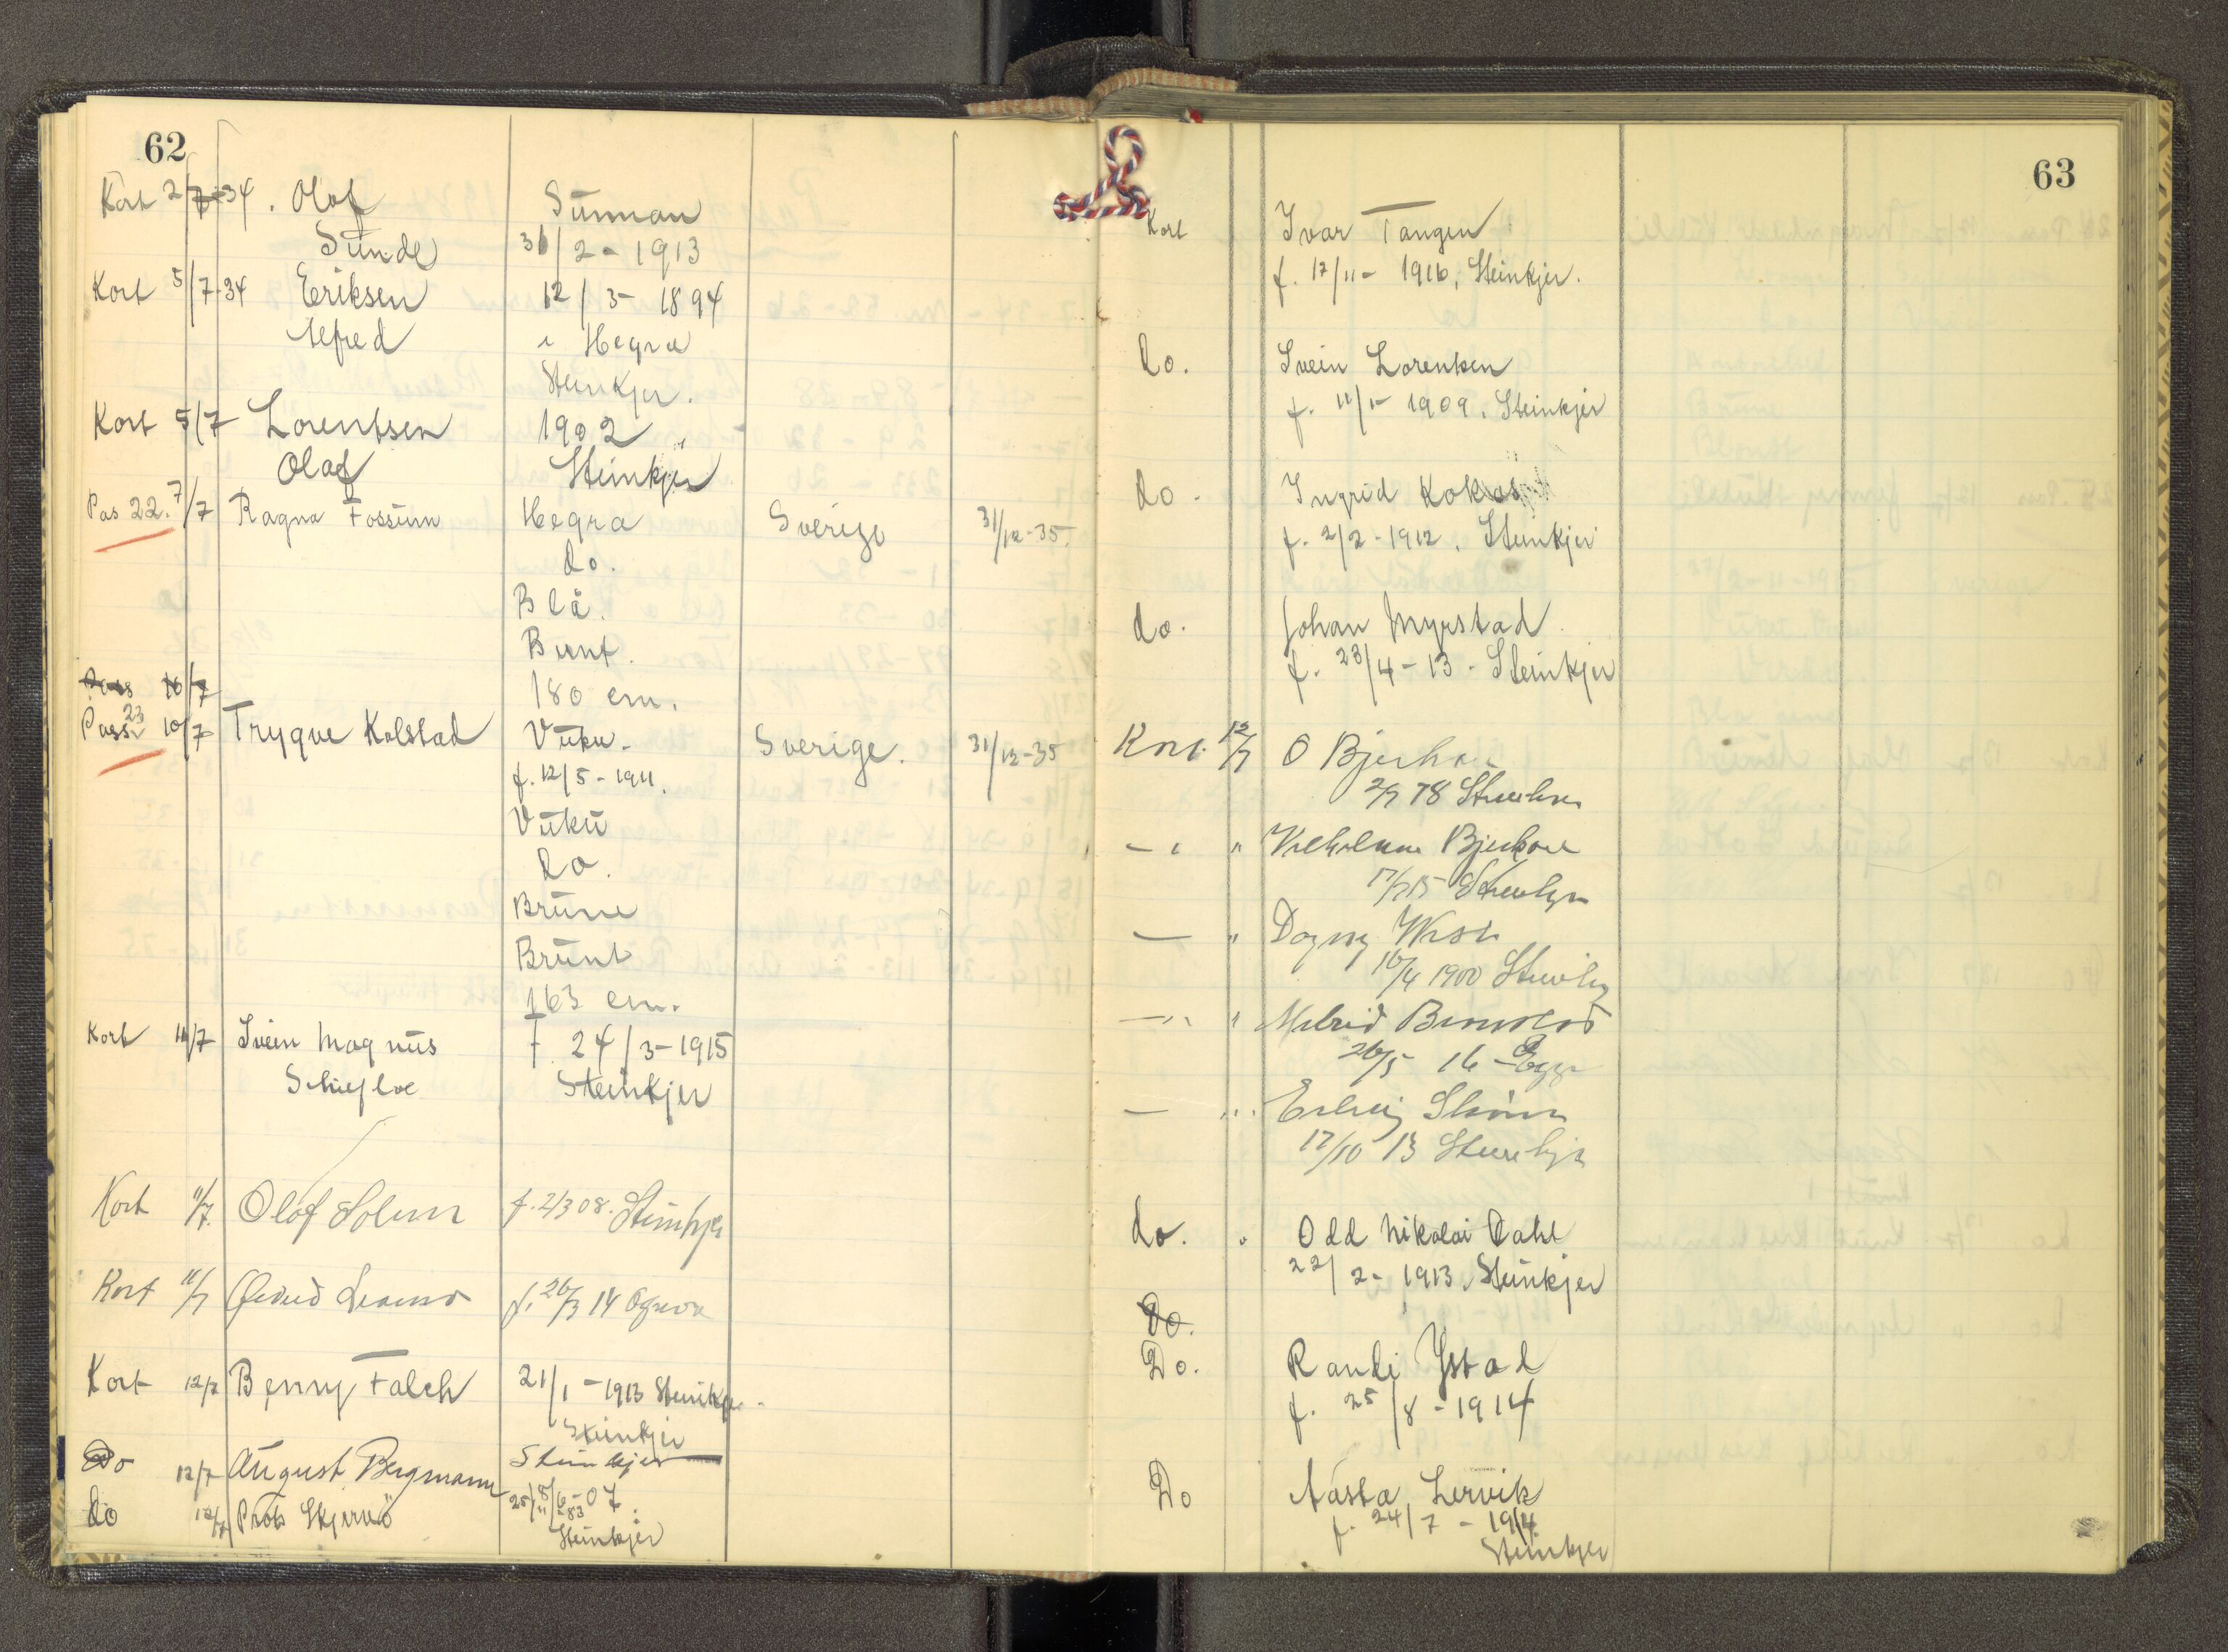 62
Kort 2/7-34. Olof Sunnan
Sunde 31/2-1913
Kort 5/7-34 Eriksen 12/3-1894
Alfred i Hegra
Steinkjer.
Kort 5/7 Lorentsen 1902
Olaf Steinkjer
Pas 22. 7/7 Ragna Fossum Hegra Sverige 31/12-35.
do.
Blå.
Brunt.
Pass 10/7 180 cm.
Pass 23 10/7 Trygve Kolstad Vuku. Sverige. 31/12-35
f. 12/5-1911.
Vuku
do.
Brune
Brunt
163 cm.
Kort 11/7 Svein Magnus f 24/3-1915
Schefloe Steinkjer
Kort 11/7. Olof Solem f. 2/3 08. Steinkjer
Kort 11/7 f. 26/3 14
Kort 12/7 Benny Falch 21/1-1913 Steinkjer.
Steinkjer
Do 12/7 August Bergmann Steinkjer
8/6-07.
do 12/7 Skjervø 25/11-83
Steinkjer
63
Kort Ivar Tangen
f. 17/11-1916, Steinkjer.
do. Svein Lorentsen
f. 11/1-1909, Steinkjer
do. Ingrid
f. 2/2-1912, Steinkjer
do. Johan Myrstad
f. 23/4-13. Steinkjer
Kort 12/7 O Bjerkan
2/7 78 Steinkjer
" Bjerkan
17/7 15 Steinkjer
— " Dagny
16/4 1900 Steinkjer
"
26/5 16 Egge
—
17/10 13 Steinkjer
do. " Odd Nikolai Dahl
22/2-1913, Steinkjer
Do.
Do. Randi Ystad
f. 25/8-1914
Do Aasta Lervik
f. 24/7-1914
Steinkjer